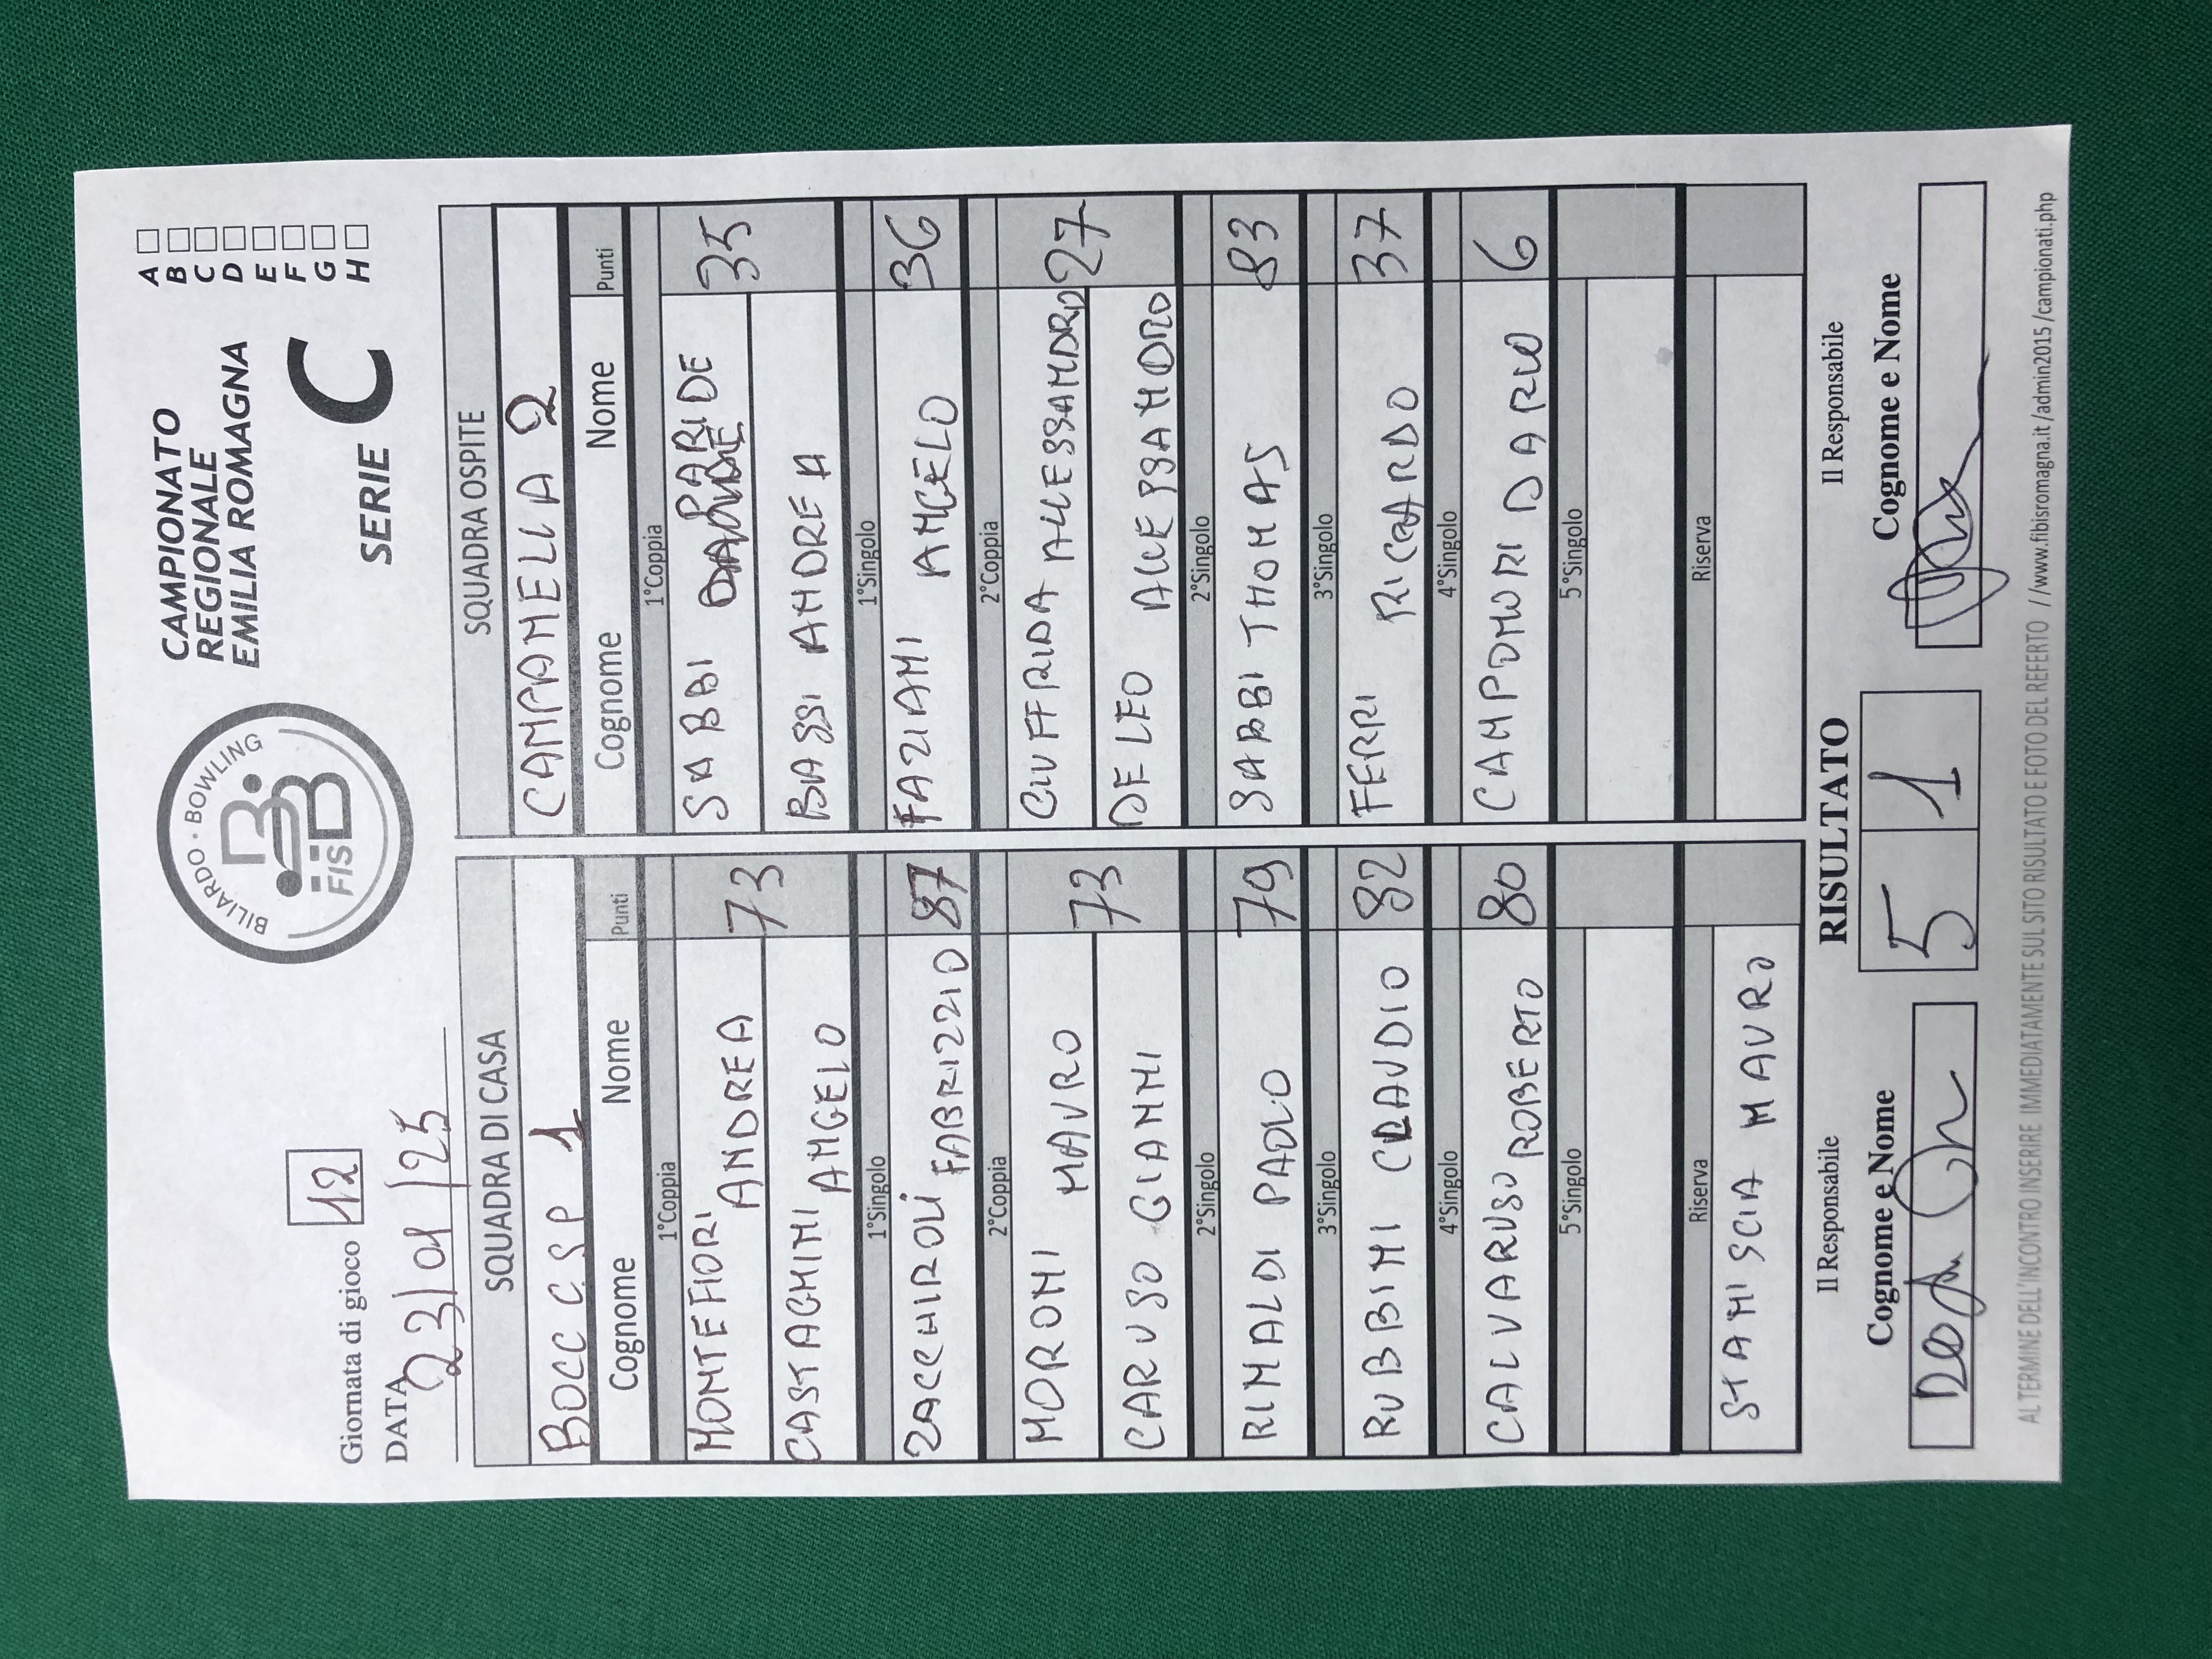 Giornata di gioco 12
DATA 23/01/25
BILIARDO · BOWLING
FISBB
CAMPIONATO
REGIONALE
EMILIA ROMAGNA
SERIE C
A
B
C
D
E
F
G
H
SQUADRA DI CASA
BOCC C.S.P 1
Cognome Nome Punti
1°Coppia
MONTEFIORI ANDREA
73
CASTAGNINI ANGELO
1°Singolo
ZACCHIROLI FABRIZZIO 87
2°Coppia
MORONI MAURO
73
CARUSO GIANNI
2°Singolo
RINALDI PAOLO 79
3°Singolo
RUBBINI CLAUDIO 82
4°Singolo
CALVARUSO ROBERTO 80
5°Singolo
Riserva
STANISCIA MAURO
SQUADRA OSPITE
CAMPANELLA 2
Cognome Nome Punti
1°Coppia
SABBI PARIDE
35
BASSI ANDREA
1°Singolo
FAZIANI ANGELO 36
2°Coppia
GIUFFRIDA ALLESSANDRO
27
DE LEO ALLESSANDRO
2°Singolo
SABBI THOMAS 83
3°Singolo
FERRI RICCARDO 37
4°Singolo
CAMPONORI DARIO 6
5°Singolo
Riserva
Il Responsabile
Cognome e Nome
RISULTATO
5 1
Il Responsabile
Cognome e Nome
AL TERMINE DELL'INCONTRO INSERIRE IMMEDIATAMENTE SUL SITO RISULTATO E FOTO DEL REFERTO //www.fibisromagna.it /admin2015 /campionati.php